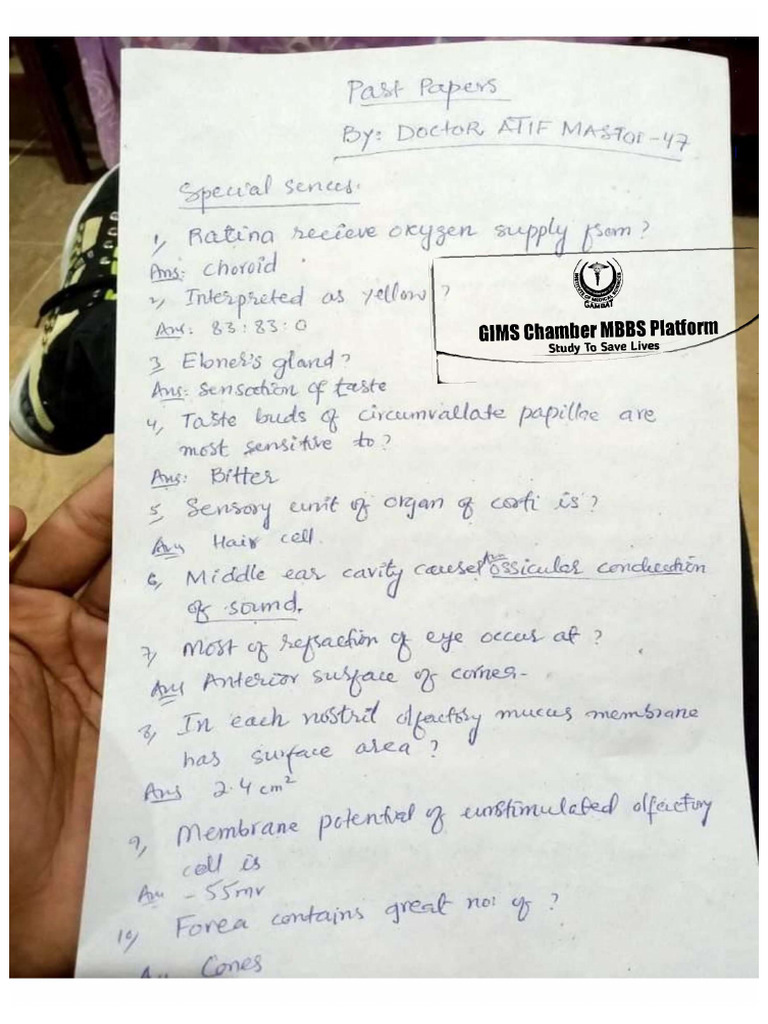 Past Papers
By: DOCTOR ATIF MASTOI-47
Special sences.
1, Ratina recieve oxygen supply from?
Ans: choroid
2, Interpreted as yellow?
Ans: 83:83:0
3, Ebner's gland?
Ans: Sensation of taste
4, Taste buds of circumvallate papillae are
most sensitive to?
Ans: Bitter
5, Sensory unit of organ of corti is?
Ans Hair cell.
6, Middle ear cavity causes ossicular conduction
of sound.
7, Most of refraction of eye occur at?
Ans Anterior surface of cornea-
8, In each nostril olfactory mucus membrane
has surface area?
Ans 2.4 cm²
9, Membrane potential of unstimulated olfactory
cell is
Ans -55mv
10, Forea contains great no: of?
Cones
INSTITUTE OF MEDICAL SCIENCES
GAMBAT
GIMS Chamber MBBS Platform
Study To Save Lives